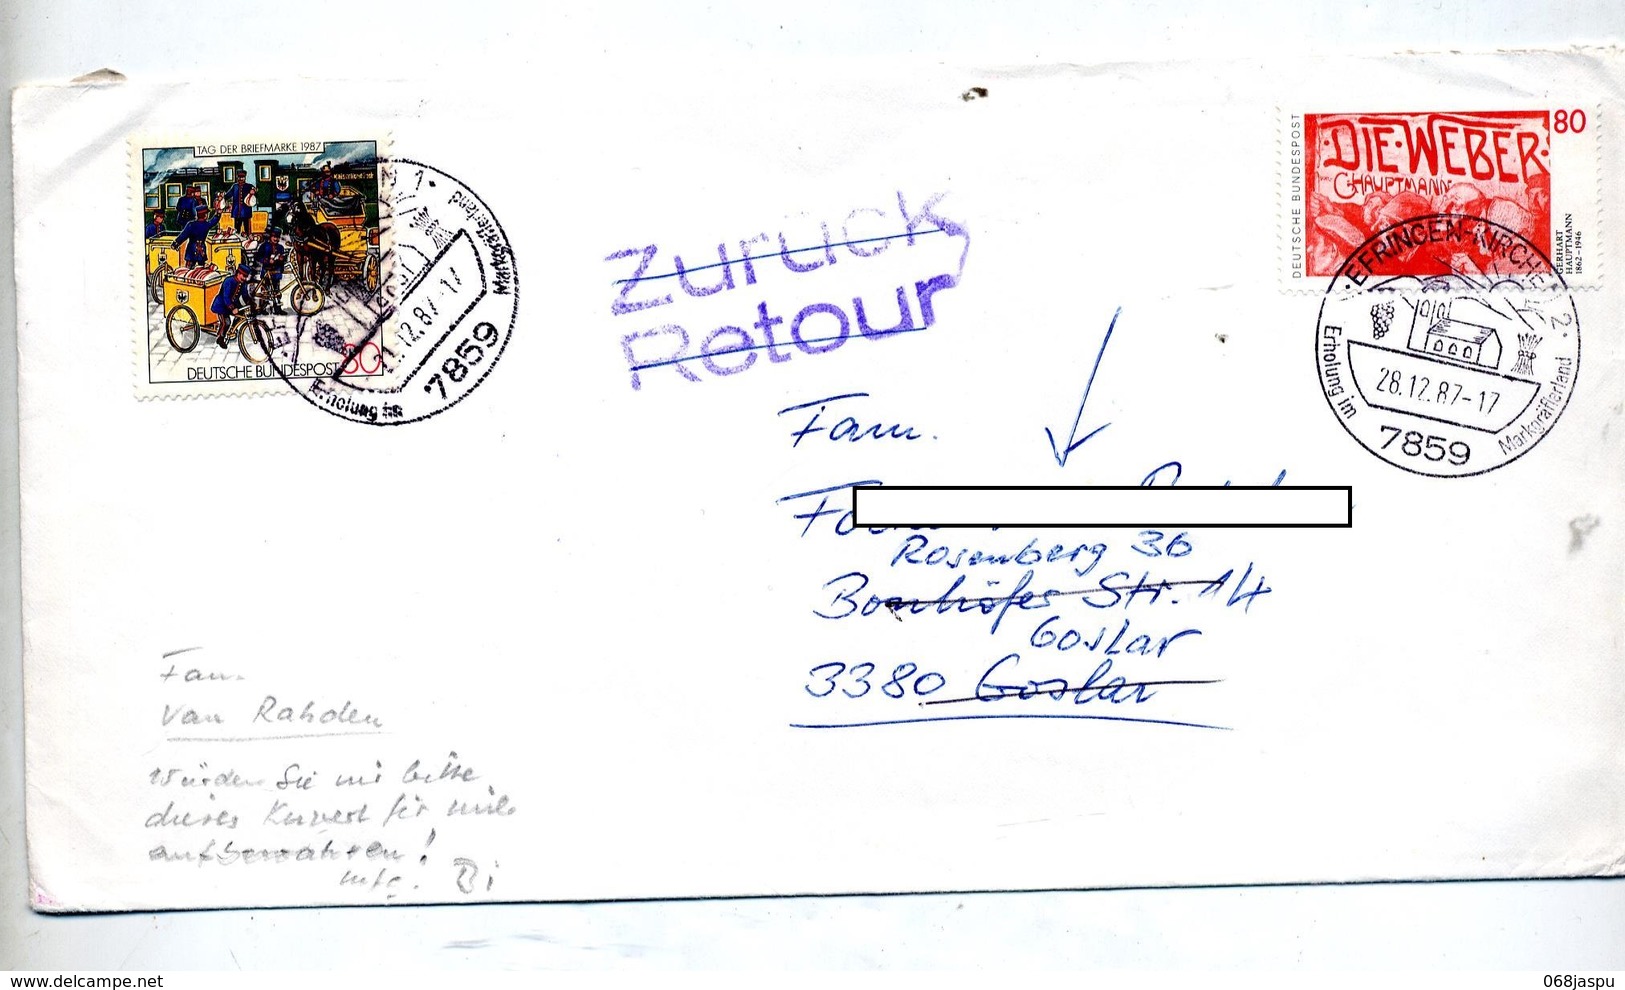 TAG DER BRIEFMARKE 1987
DEUTSCHE BUNDESPOST 80
1
21.12.87-17
7859
Erholung im
Markgräflerland
Zurück
Retour
DEUTSCHE BUNDESPOST
DIE WEBER
G. HAUPTMANN
80
GERHART
HAUPTMANN
1862-1946
EFRINGEN-KIRCHEN 2
28.12.87-17
7859
Erholung im
Markgräflerland
Fam.
Rosenberg 36
Bonhöfer Str. 1/4
Goslar
3380 Goslar
Fam.
van Rahden
Würden Sie mir bitte
dieses Kuvert für mich
aufbewahren!
mfg. Bi
delcampe.net
068jaspu